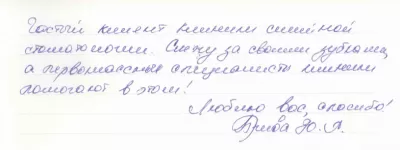 Частый клиент клиники семейной
стоматологии. Слежу за своими зубками,
а первоклассные специалисты клиники
помогают в этом!
Люблю вас, спасибо!
Ю. А.